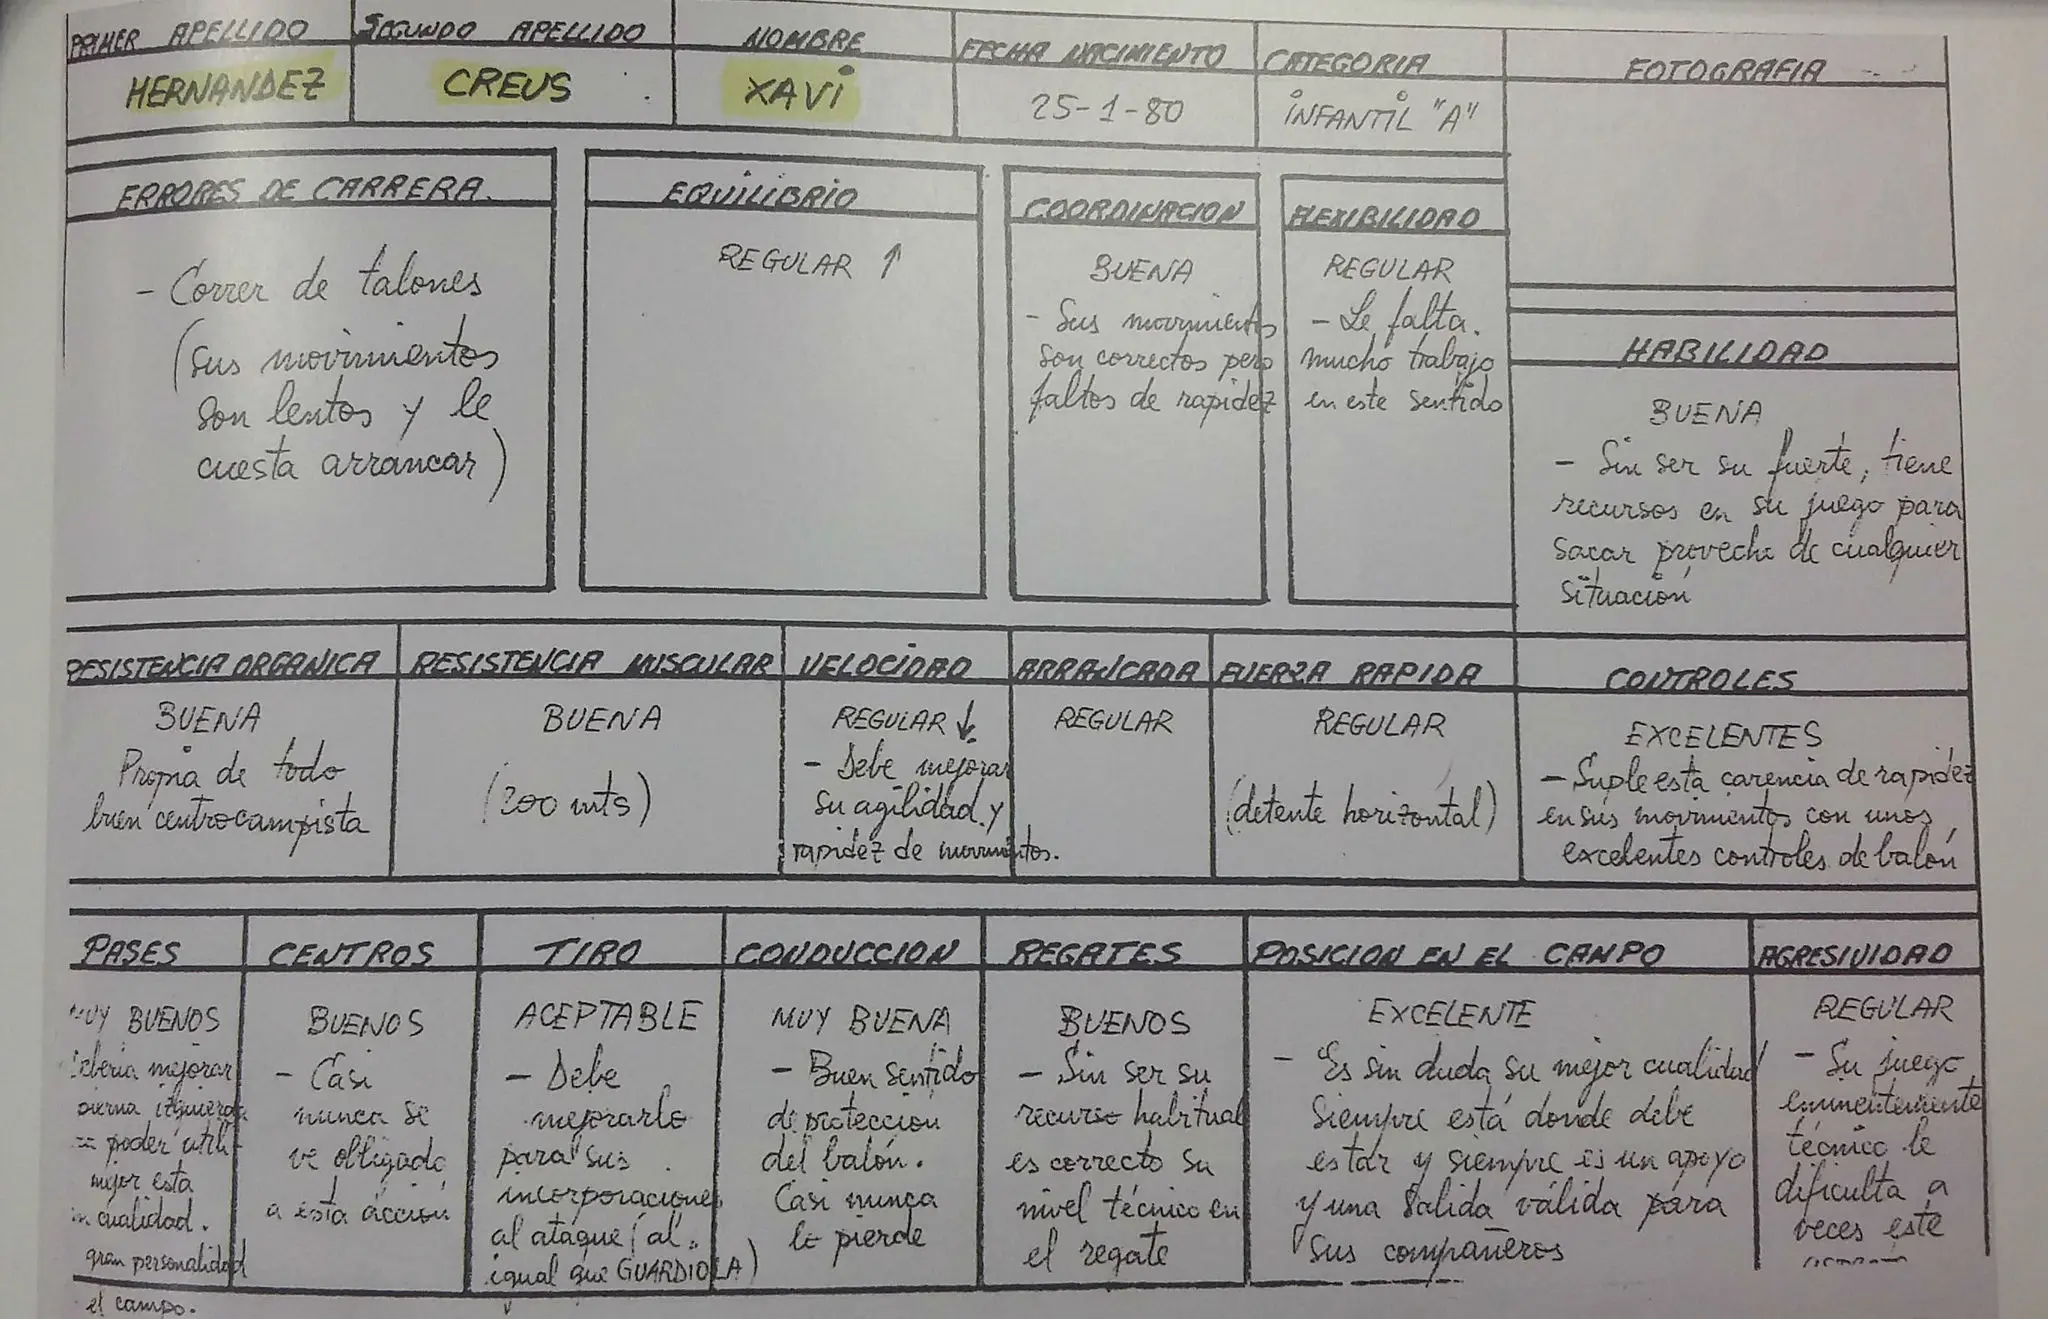 PRIMER APELLIDO
HERNANDEZ
SEGUNDO APELLIDO
CREUS
NOMBRE
XAVi
FECHA NACIMIENTO
25-1-80
CATEGORIA
iNFANTiL "A"
FOTOGRAFIA
ERRORES DE CARRERA.
- Correr de talones
(sus movimientos
son lentos y le
cuesta arrancar)
EQUILIBRIO
REGULAR ↑
COORDINACION
BUENA
- Sus movimientos
son correctos pero
faltos de rapidez
FLEXIBILIDAD
REGULAR
- Le falta
mucho trabajo
en este sentido
HABILIDAD
BUENA
- Sin ser su fuerte, tiene
recursos en su juego para
sacar provecho de cualquier
situación
RESISTENCIA ORGANICA
BUENA
Propia de todo
buen centrocampista
RESISTENCIA MUSCULAR
BUENA
(200 mts)
VELOCIDAD
REGULAR ↓
- Debe mejorar
su agilidad y
rapidez de movimientos.
ARRANCADA
REGULAR
FUERZA RAPIDA
REGULAR
(detente horizontal)
CONTROLES
EXCELENTES
- Suple esta carencia de rapidez
en sus movimientos con unos
excelentes controles de balón
PASES
MUY BUENOS
mejorar
pierna izquierda
poder
mejor esta
cualidad.
gran personalidad
el campo.
CENTROS
BUENOS
- Casi
nunca se
ve obligado
a esta acción
TIRO
ACEPTABLE
- Debe
mejorarlo
para sus
incorporaciones
al ataque (al
igual que GUARDIOLA)
CONDUCCION
MUY BUENA
- Buen sentido
de protección
del balón.
Casi nunca
lo pierde
REGATES
BUENOS
- Sin ser su
recurso habitual
es correcto su
nivel técnico en
el regate
POSICION EN EL CAMPO
EXCELENTE
- Es sin duda su mejor cualidad
Siempre está donde debe
estar y siempre es un apoyo
y una salida válida para
sus compañeros
AGRESIVIDAD
REGULAR
- Su juego
eminentemente
técnico le
dificulta a
veces este